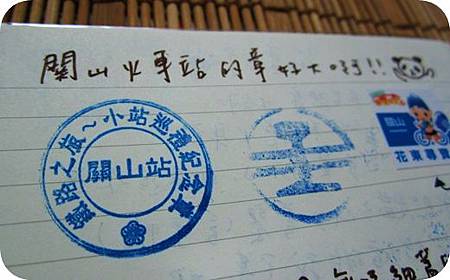 關山火車站的章好大呀!!
鐵路之旅~小站巡禮紀念章
關山站
關山
花東尋寶